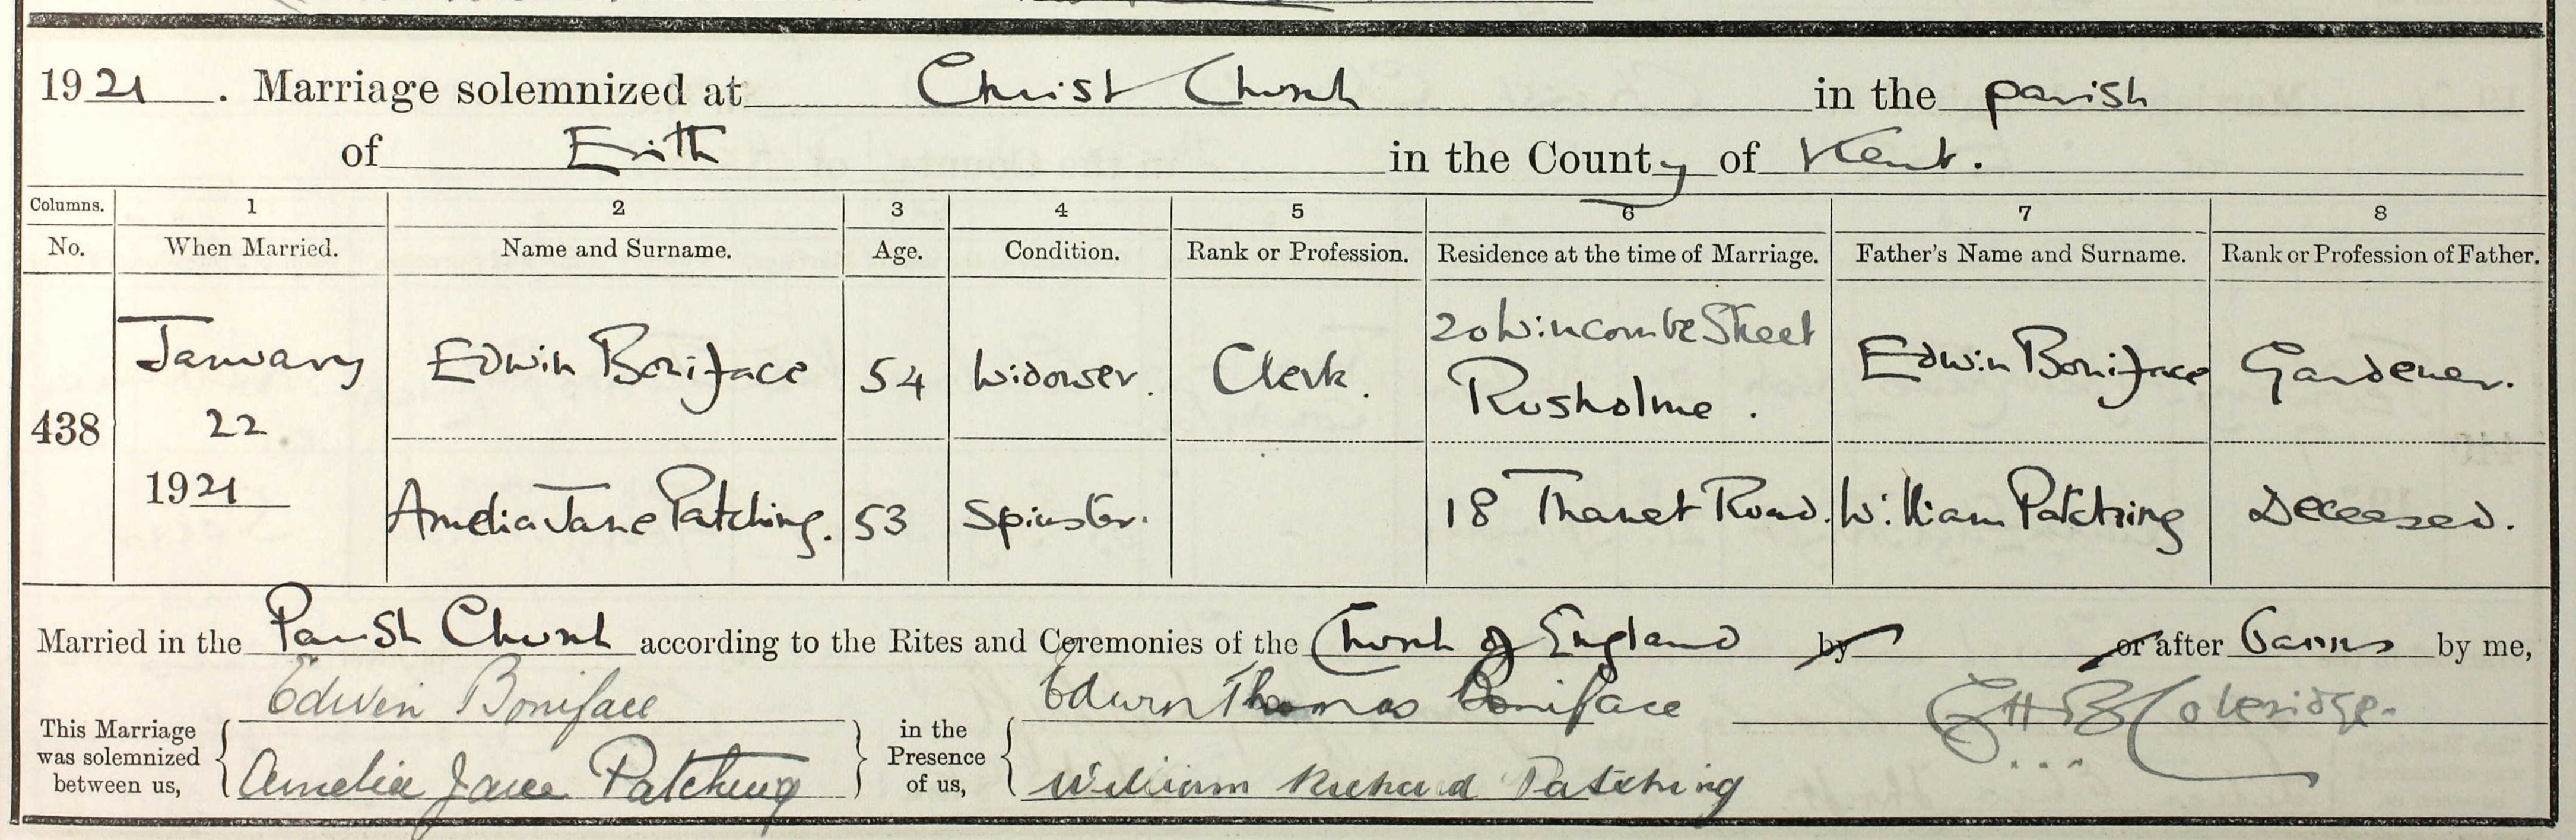 1921. Marriage solemnized at Christ Church in the parish
of Erith in the County of Kent.
Columns. 1 2 3 4 5 6 7 8
No. When Married. Name and Surname. Age. Condition. Rank or Profession. Residence at the time of Marriage. Father's Name and Surname. Rank or Profession of Father.
438 January 22 1921 Edwin Boniface 54 Widower. Clerk. 20 Wincombe Street Rusholme. Edwin Boniface Gardener.
Amelia Jane Patching. 53 Spinster. 18 Thanet Road. William Patching Deceased.
Married in the Parish Church according to the Rites and Ceremonies of the Church of England by or after Banns by me,
This Marriage was solemnized between us, Edwin Boniface Amelia Jane Patching in the Presence of us, Edwin Thomas Boniface William Richard Patching Coleridge.